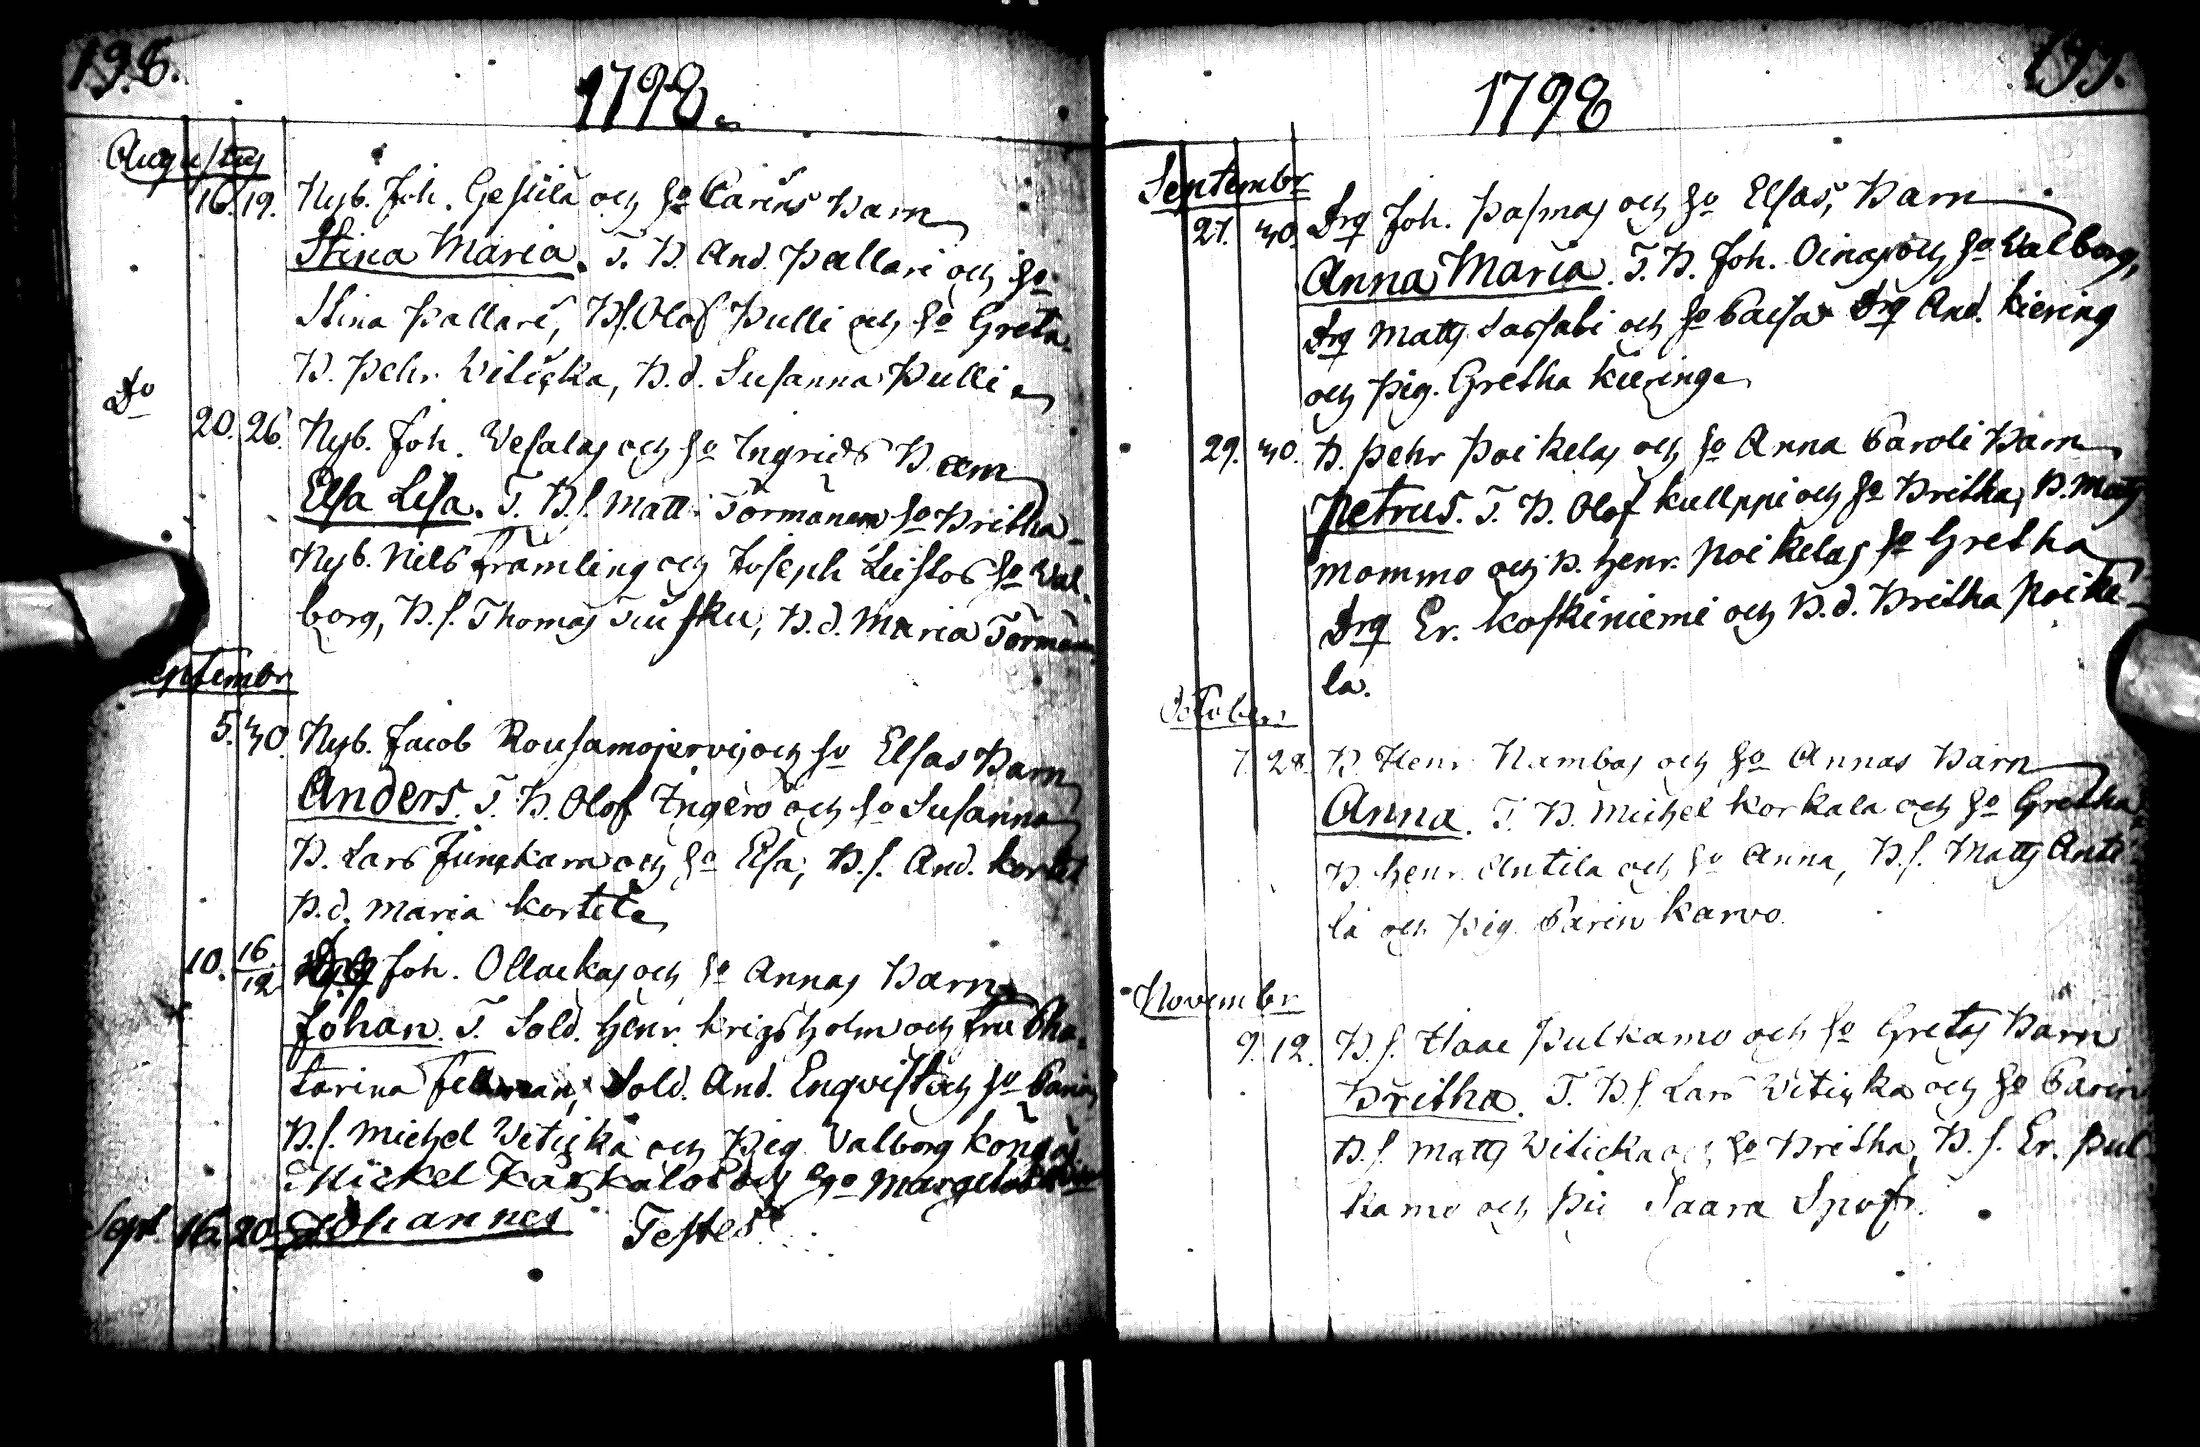 198.
1798.
Augustus
16. 19. Nyb. Joh. Gestilä och H:o Carins Barn
Stina Maria. T. B. And. Pallari och H:o
Stina Pallari, B.s. Olof Pulli och H:o Greta
B. Pehr Viticka, B.d. Susanna Pulli
D:o
20. 26. Nyb. Joh. Vesalas och H:o Ingrids Barn
Elsa Lisa. T. B.s. Matt. Törmänen H:o Britha
Nyb. Nils Främling och Joseph Leistos H:o Val-
borg, B.s. Thomas Tuisku, B.d. Maria Törmän
Septembr
5. 30. Nyb. Jacob Rousamojervis och H:o Elsas Barn
Anders. T. B. Olof Ingero och H:o Susanna
B. Lars Junkara och H:o Elsa, B.s. And. Kortet
B.d. Maria Kortet
10. 16/12 Joh. Ollackas och H:o Annas Barn
Johan. T. Sold. Henr. Krigsholm och fru Cha-
tarina Fellman, Sold. And. Enqvist och H:o Carin,
B.s. Michel Viticka och Pig. Valborg Köngäs
Mickel Karkalos och H:o Margetas
Sept. 16. 20. Johannes Testes
199.
1798
Septembr
27. 30. Drg Joh. Pasmas och H:o Elsas, Barn
Anna Maria. T. B. Joh. Oinas och H:o Valborg,
Drg Matts Sassali och H:o Caisa Drg And. Kiering
och Pig. Gretha Kieringe
29. 30. B. Pehr Poikelas och H:o Anna Caroli Barn
Petrus. T. B. Olof Kulppi och H:o Britha, B. Matts
Mommo och B. Henr. Poikelas H:o Gretha
Drg Er. Koskiniemi och B.d. Britha Poike-
la.
October
7. 28. B. Henr. Nambas och H:o Annas Barn
Anna. T. B. Michel Korkala och H:o Gretha,
B. Henr. Antila och H:o Anna, B.s. Matts Anti
la och Pig. Carin Karvo.
Novembr
9. 12. B.s. Isaac Pulkamo och H:o Gretas Barn
Britha. T. B.s. Lars Viticka och H:o Carin
B.s. Matts Viticka och H:o Britha, B.s. Er. Pul-
kamo och Pig Saara Spof.